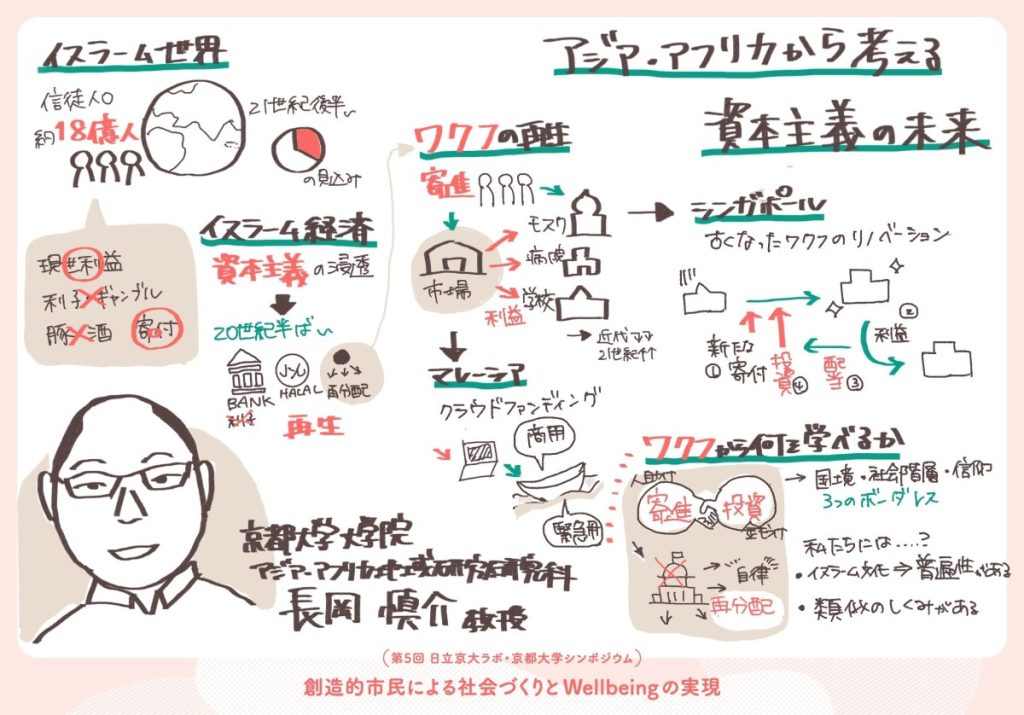 アジア・アフリカから考える
資本主義の未来
イスラーム世界
信徒人口
約18億人
21世紀後半い
の見込み
現世利益
利子・ギャンブル
豚・酒
寄付
イスラーム経済
資本主義の浸透
20世紀半ばい
BANK
利子
HALAL
再分配
再生
ワクフの再生
寄進
市場
モスク
病院
学校
利益
→近代
21世紀
マレーシア
クラウドファンディング
商用
緊急用
シンガポール
古くなったワクフのリノベーション
新たな
①寄付
投資④
配当③
②
利益
ワクフから何を学べるか
人助け
寄進
投資
金もうけ
自律
再分配
→国境・社会階層・信仰
3つのボーダレス
私たちには....?
・イスラーム文化⇒普遍性がある
・類似のしくみがある
京都大学大学院
アジア・アフリカ地域研究研究科
長岡 慎介 教授
(第5回 日立京大ラボ・京都大学シンポジウム)
創造的市民による社会づくりとWellbeingの実現